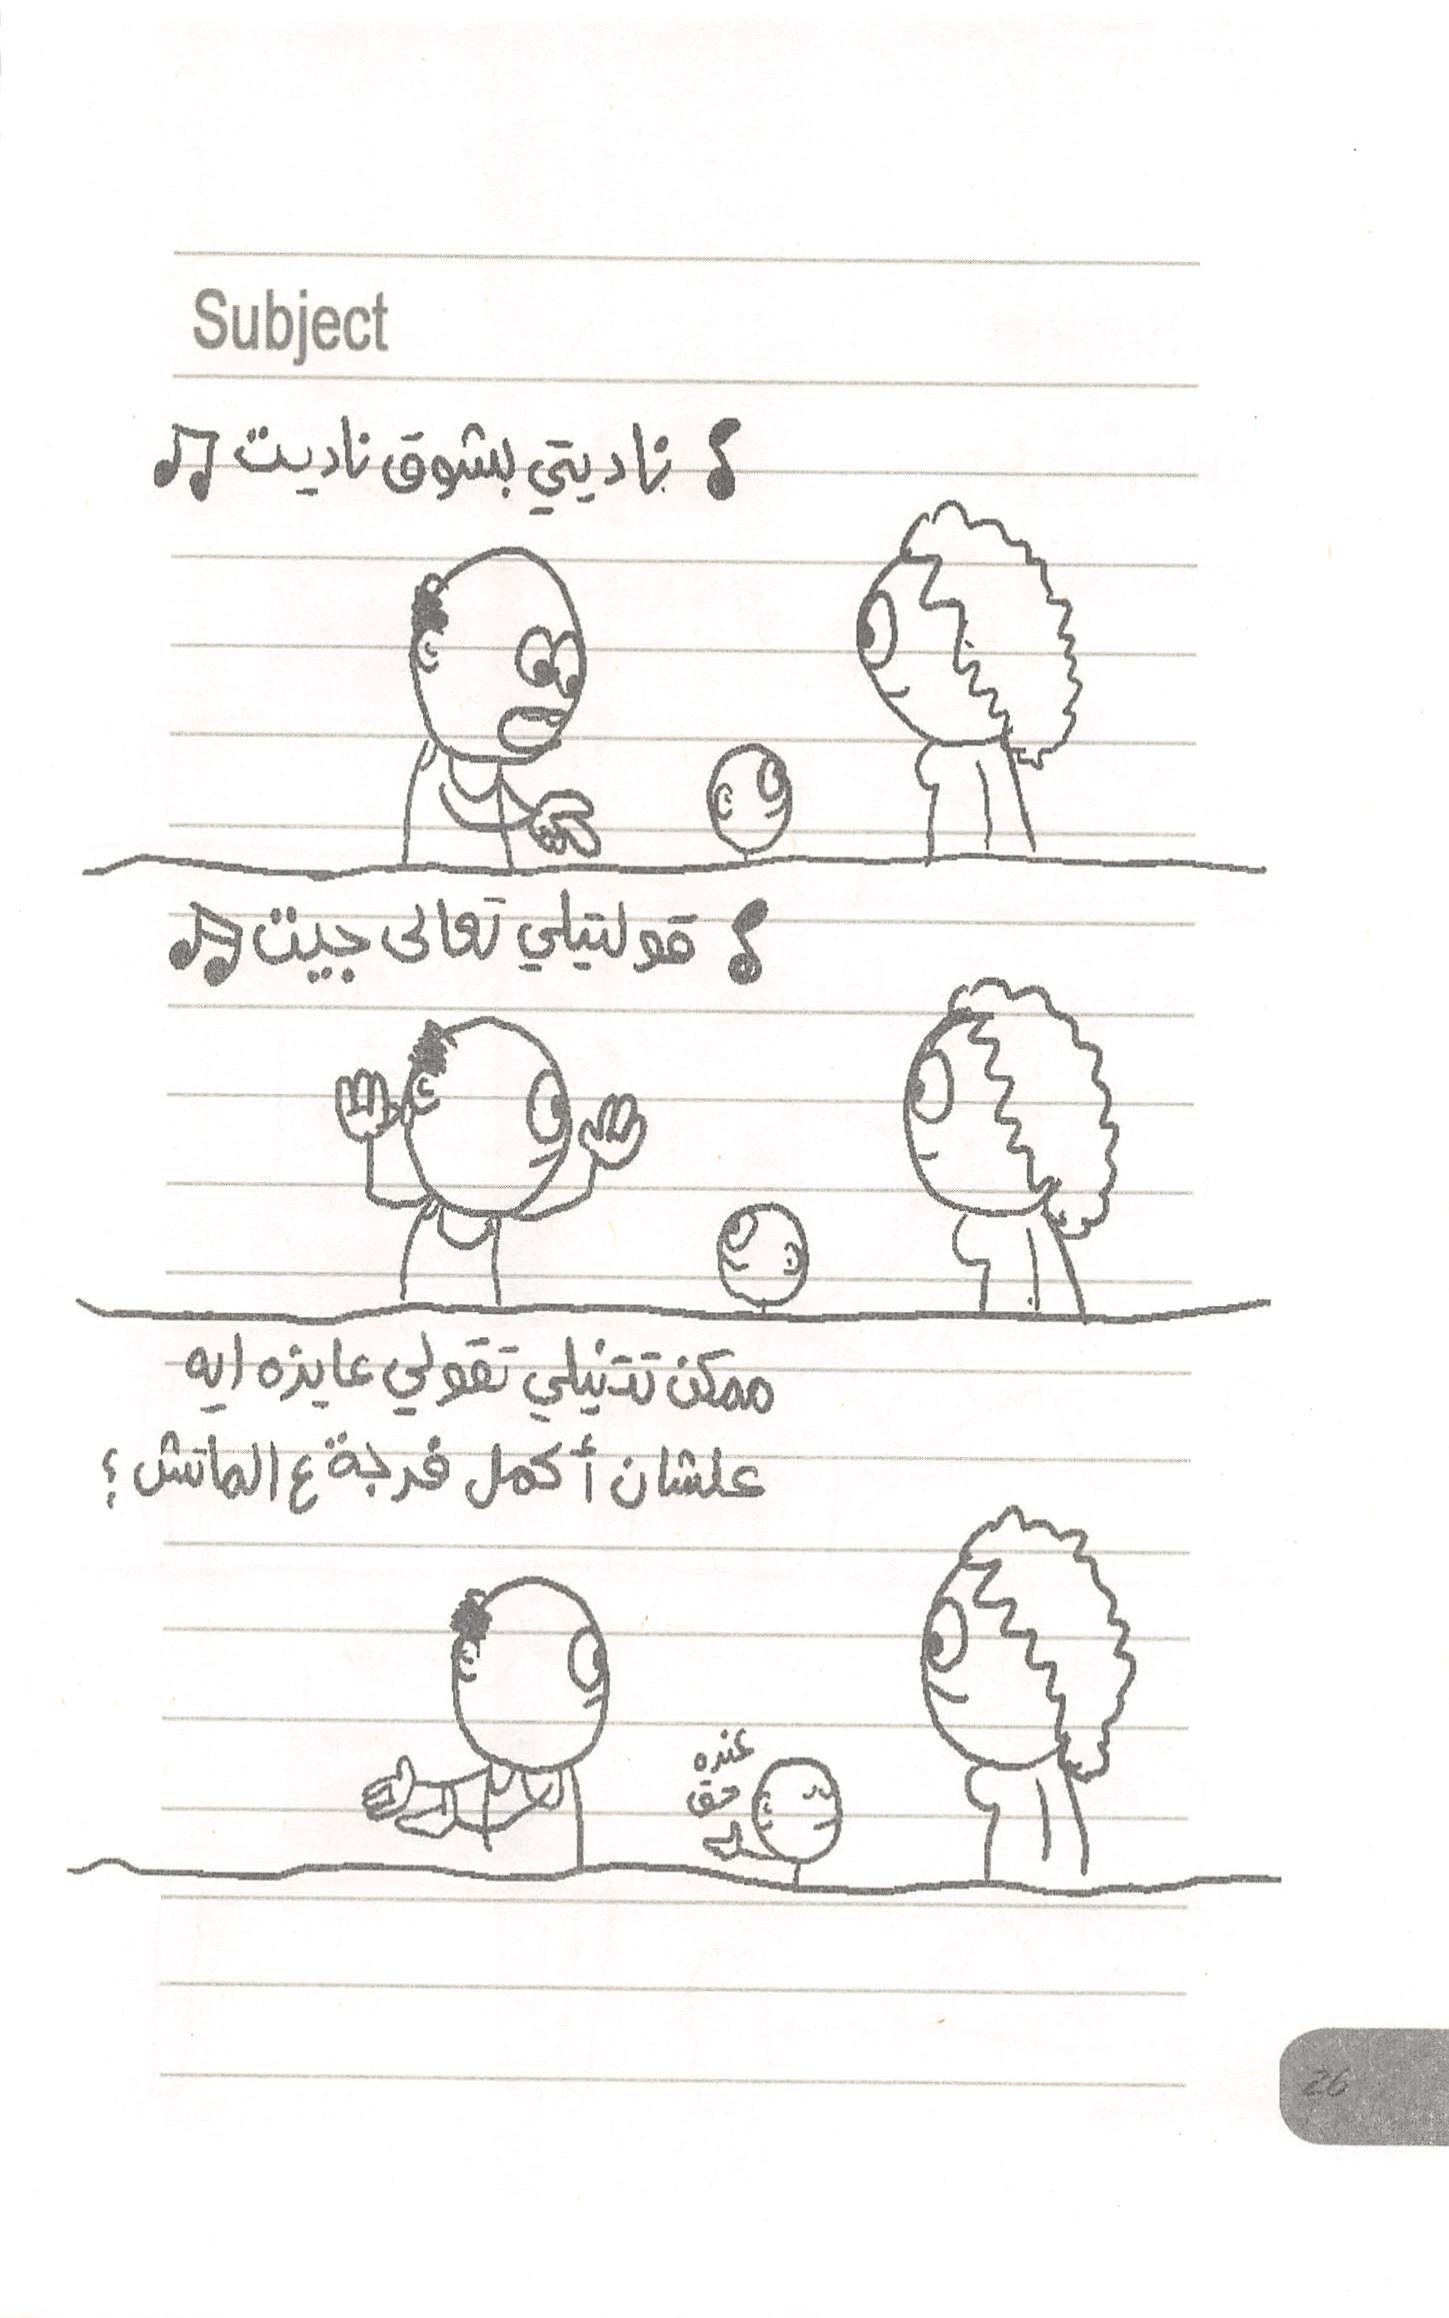 Subject
ناديتي بشوق ناديت
قولتيلي تعالى جيت
ممكن تتنيلي تقولي عايزه ايه
علشان أكمل فرجة ع الماتش؟
عنده
حق
26